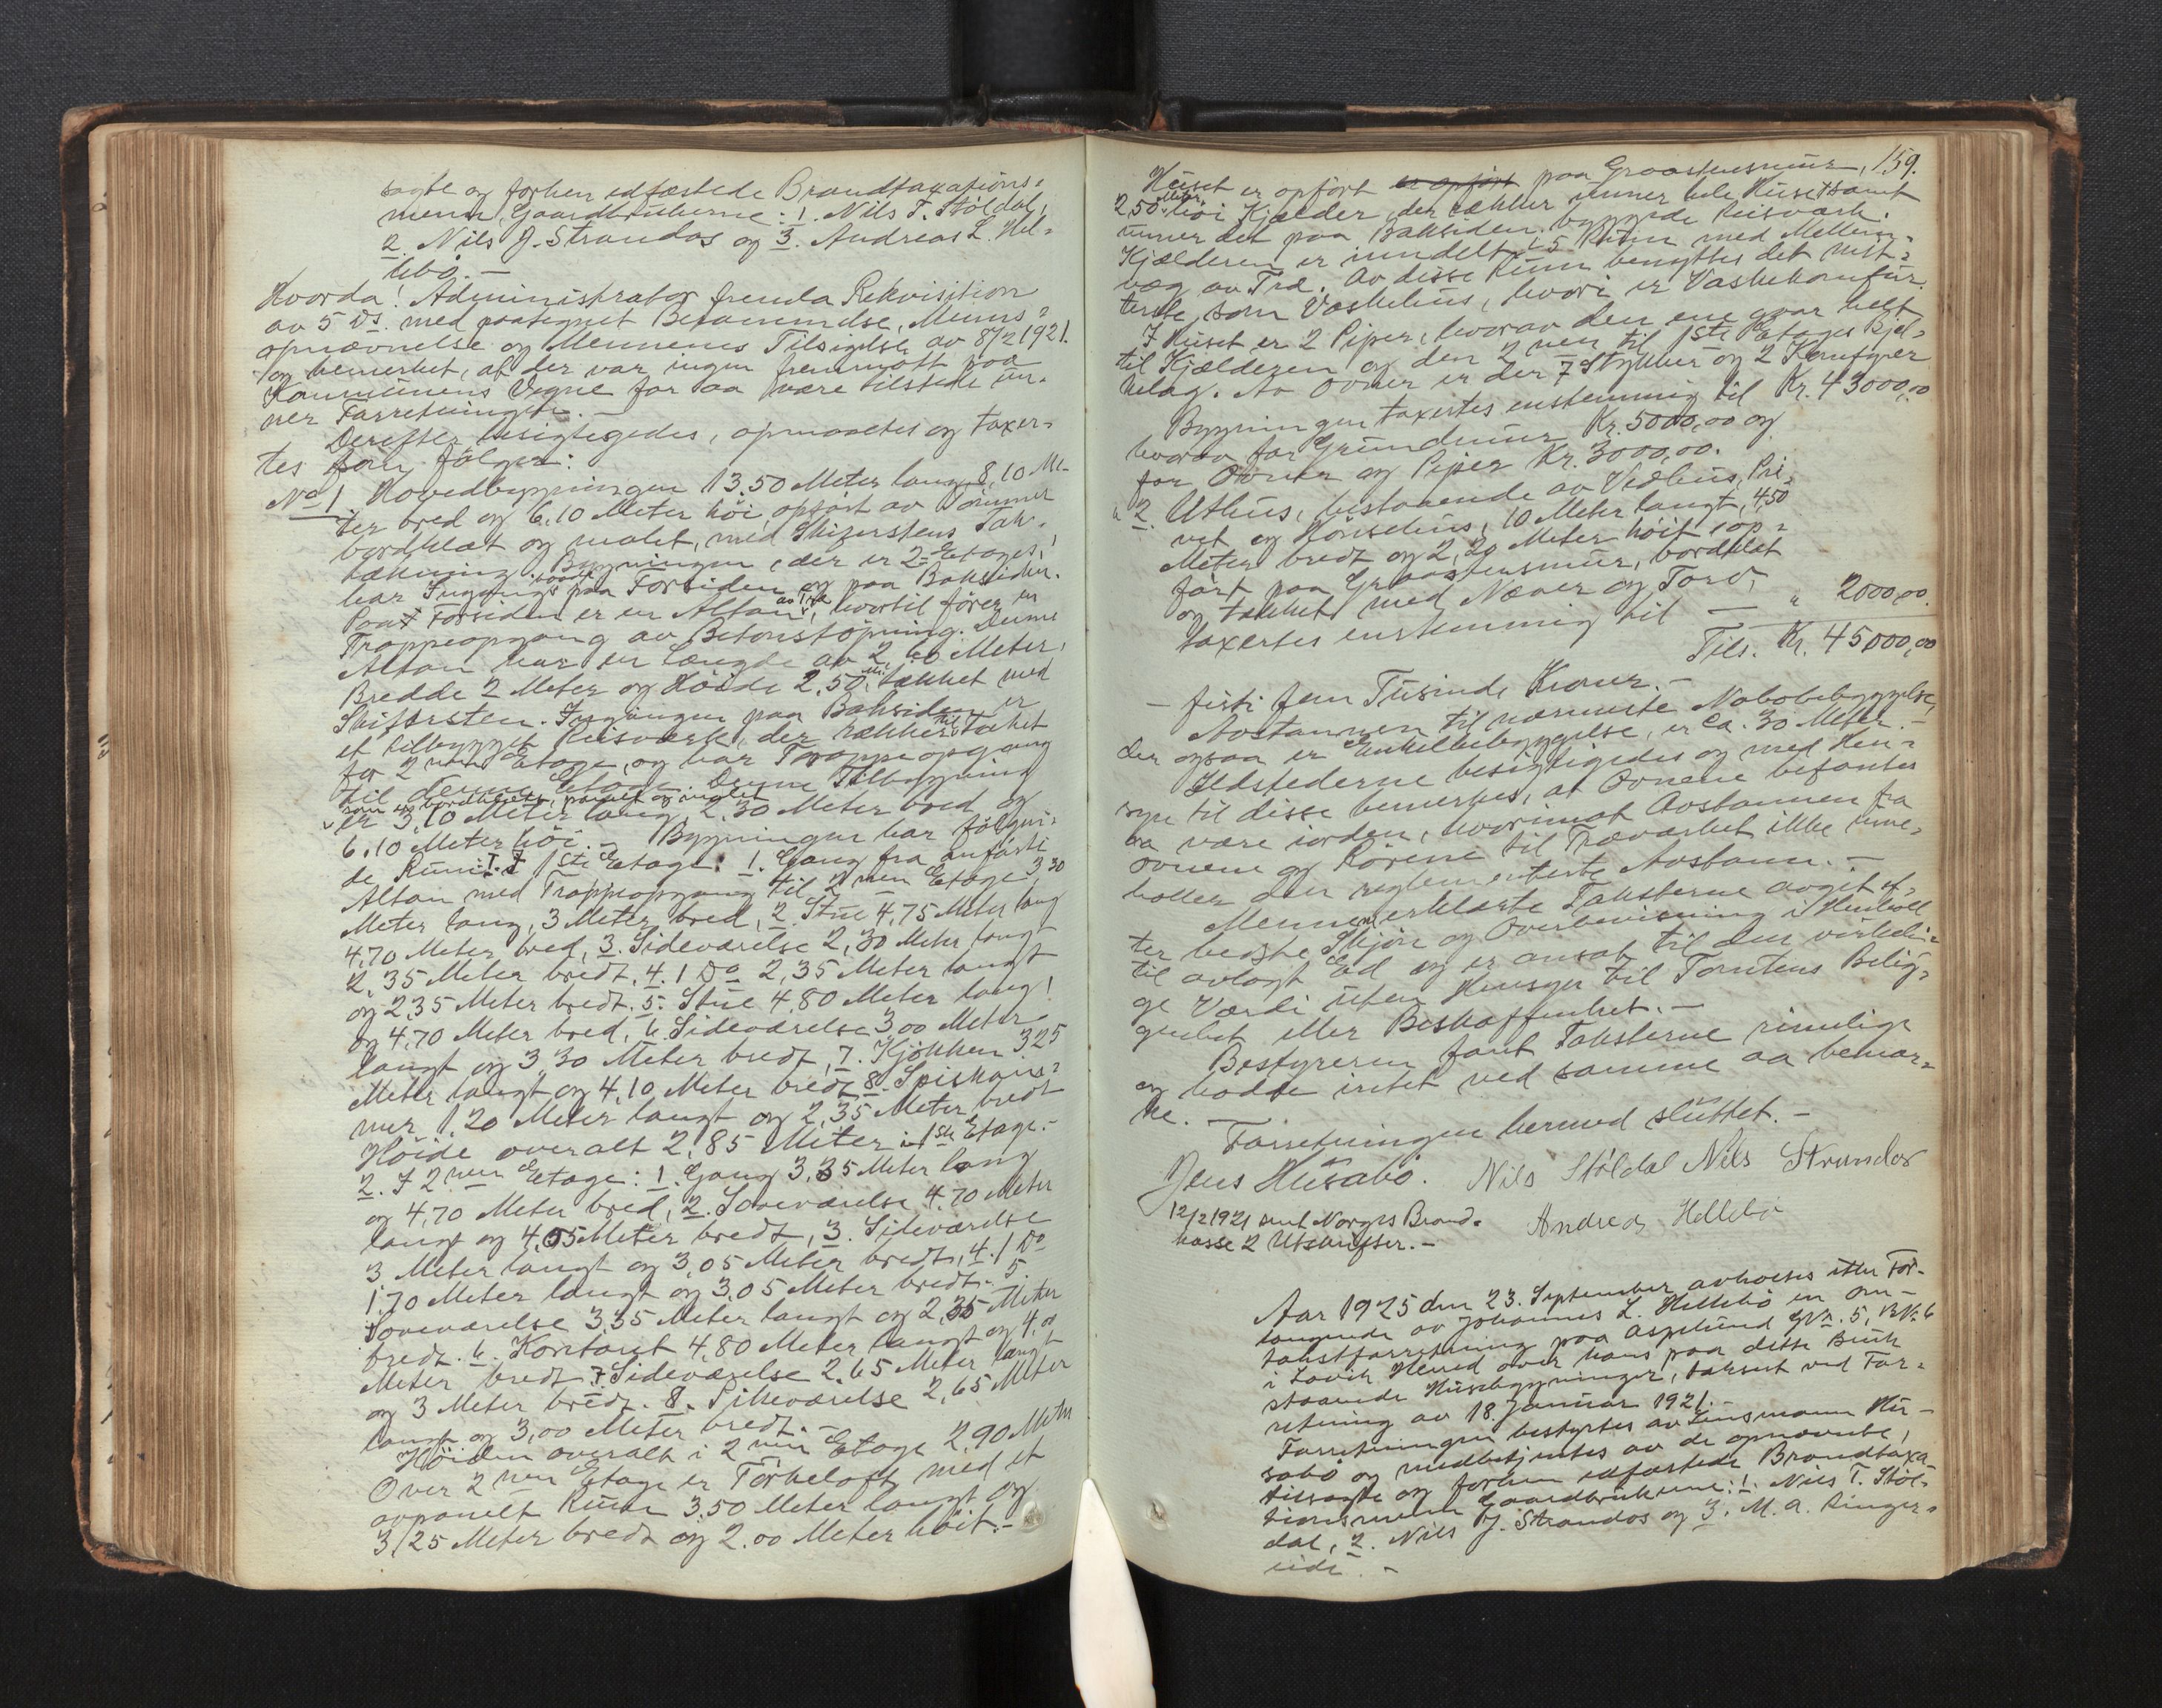 sagte og forhen edfæstede Brandtaxations-
mænd, Gaardbrukerne: 1. Nils T. Stöldal,
2. Nils J. Strandos og 3. Andreas L. Hel-
lebö. —
Hvorda! Administrator fremla Rekvisition
av 5 ds. med paategnet Berammelse, Mænds-
opnævnelse og Mennenes Tilsigelse av 8/2 1921.
og bemerket, at der var ingen fremmött paa
Kommunens Vegne for aa være tilstede un-
der Forretningen. —
Derefter besigtigedes, opmaaltes og taxer-
tes som fölger:
No 1 Hovedbygningen 13.50 Meter lang, 8,10 Me-
ter bred og 6,10 Meter höi, opfört av Tömmer
bordklæt og malet, med Skiferstens Tak-
tækning. Bygningen, der er 2 Etages,
har Ingang baade paa Forsiden og paa Baksiden.
Paa Forsiden er en Altan av Træ, hvortil förer en
Trappeopgang av Betonstöpning. Denne
Altan har en Længde av 2,60 Meter,
Bredde 2 Meter og Höide 2,50 m. tækket med
Skifersten. Ingangen paa Baksiden er
et tilbygget Reisværk, der rækker til Taket
for 2 nen Etage, og har Trappeopgang
til denne Etage. Denne Tilbygning
som er bordklædt, panelt og malet
er 3,10 Meter lang, 2,30 Meter bred og
6,10 Meter höi. — Bygningen har fölgen-
de Rum: I. I 1ste Etage: 1. Gang fra anförte
Altan med Trappeopgang til 2 nen Etage 3,30
Meter lang, 3 Meter bred, 2. Stue 4,75 Meter lang
4,70 Meter bred, 3. Sideværelse 2,30 Meter langt
2,35 Meter bredt, 4. 1 Do 2,35 Meter langt
og 2,35 Meter bredt. 5. Stue 4,80 Meter lang,
og 4,70 Meter bred, 6. Sideværelse 3,00 Meter
langt og 3,30 Meter bredt, 7. Kjökken 3,25
Meter langt og 4,10 Meter bredt 8. Spiskam-
mer 1,20 Meter langt og 2,35 Meter bredt
Höide overalt 2,85 Meter i 1ste Etage. —
2. I 2 nen Etage: 1. Gang 3,35 Meter lang
og 4,70 Meter bred, 2. Soveværelse 4,70 Meter
langt og 4,05 Meter bredt, 3. Sideværelse
3 Meter langt og 3,05 Meter bredt, 4. 1 Do
1,70 Meter langt og 3,05 Meter bredt. 5.
Soveværelse 3,35 Meter langt og 2,35 Meter
bredt. 6. Kontoret 4,80 Meter langt og 4,00
Meter bredt 7. Sideværelse 2,65 Meter langt
og 3 Meter bredt. 8. Pikeværelse 2,65 Meter
langt og 3,00 Meter bredt. —
Höiden overalt i 2 nen Etage 2,90 Meter
Over 2 nen Etage er Törkeloft med et
avpanelt Rum 3,50 Meter langt og
3,25 Meter bredt og 2,00 Meter höit. —
159.
Huset er opfört er opfört paa Graastensmur,
2,50 Meter höi Kjælder, der rækker under hele Huset samt
under det paa Baksiden byggede Reisværk.
Kjælderen er inndelt i 5 Rum med Mellem-
væg av Træ. Av disse Rum benyttes det mit-
terste som Vaskehus, hvori er Vaskekomfur.
I Huset er 2 Piper, hvorav den ene gaar helt
til Kjælderen og den 2 nen til 1ste Etages Bjel-
kelag. Av Ovner er der 7 Stykker og 2 Komfyrer
Bygningen taxertes enstemmig til Kr. 43000,00
hvorav for Grundmur Kr. 5000,00 og
for Ovner og Piper Kr. 3000,00.
" 2. Uthus, bestaaende av Vedhus, Pri-
vet og Hönsehus, 10 Meter langt, 4,50
Meter bredt og 2,20 Meter höit, op-
fört paa Graastensmur, bordklæt
og tækket med Næver og Torv,
taxertes enstemmig til — " 2000,00
Tils. Kr. 45000,00
— firti fem Tusinde Kroner. —
Avstannen til nærmeste Nabobebyggelse,
der ogsaa er Enkeltbebyggelse, er ca. 30 Meter. —
Ildstederne besigtigedes og med Hen-
syn til disse bemerkes, at Ovnene befantes
aa være iorden, hvorimot Avstannen fra
ovnene og Rörene til Træværket ikke inne-
holder den reglementerte Avstann. —
Mennene erklærte Taksterne avgit ef-
ter bedste Skjön og Overbevisning i Henhold
til avlagt Ed og er ansat til den virkeli-
ge Værdi uten Hensyn til Tomtens Belig-
genhet eller Beskaffenhet. —
Bestyreren fant Taksterne rimelige
og hadde intet ved samme aa bemær-
ke. —
Forretningen hermed sluttet. —
Jens Husabö. Nils Stöldal Nils Strandos
12/2 1921 sent Norges Brand- Andreas Hellebö
kasse 2 Utskrifter. —
Aar 1925 den 23. September avholtes etter For-
langende av Johannes L. Hellebö en om-
takstforretning paa Aspelund GNr. 5, BNr. 6
i Lavik Herred over hans paa dette Bruk
staaende Husebygninger, taksert ved For-
retning av 18. Januar 1921. —
Forretningen bestyrtes av Lensmann Hu-
sabö og medbetjentes av de opnævnte,
tilsagte og forhen edfæstede Brandtaxa-
tionsmenn Gaardbrukerne: 1. Nils T. Stöl-
dal, 2. Nils J. Strandos og 3. M. A. Ringer-
eide. —